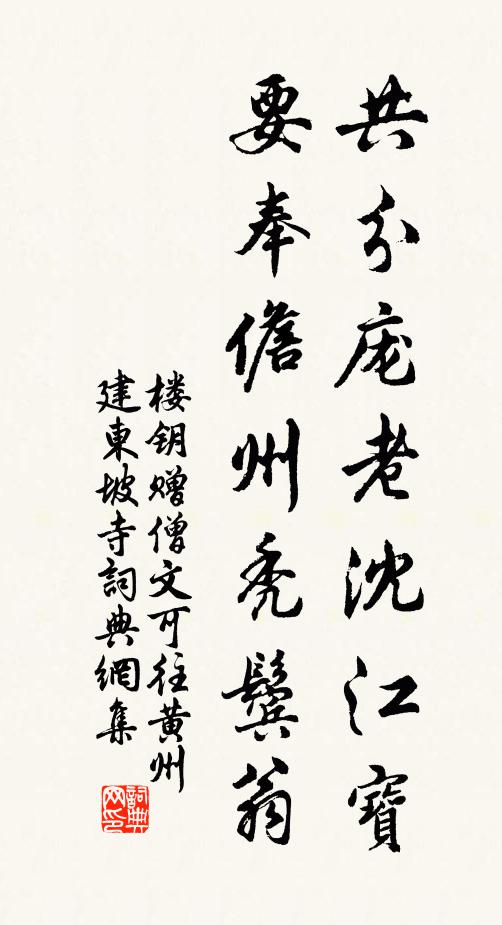 共分庞老沈江寶
要奉儋州秃鬓翁
楼钥赠僧文可往黄州
建東坡寺詞典網集
詞典网印